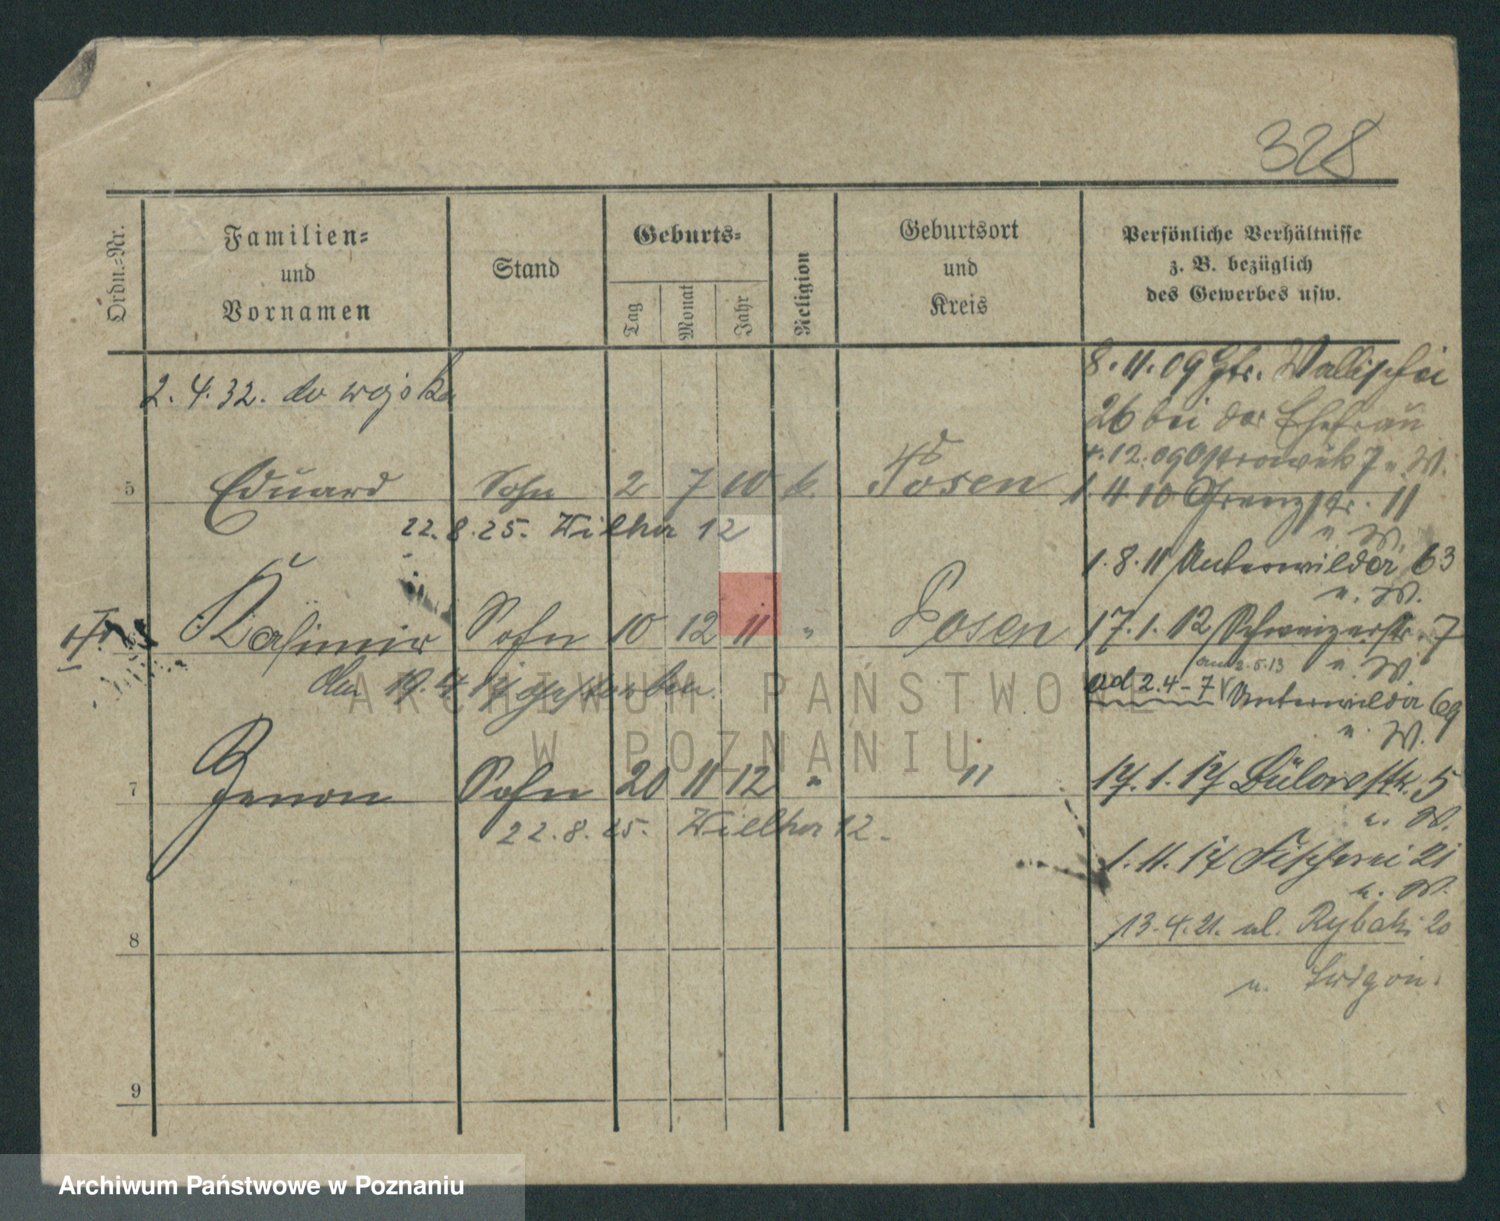 328
Ordn.-Nr.
Familien-
und
Vornamen
Stand
Geburts-
Tag
Monat
Jahr
Religion
Geburtsort
und
Kreis
Persönliche Verhältnisse
z. B. bezüglich
des Gewerbes usw.
2.4.32. do wojska
8.11.09 Gr. Wallischei
26 bei der Ehefrau
5 Eduard Sohn 2 7 10 k. Posen
12.09 Ostrowek 7 u. W.
1.4.10 Grenzstr. 11
u. W.
22.8.25. Zielha 12
1.8.11 Unterwilda 63
u. W.
Kasimir Sohn 10 12 11 " Posen
17.1.12 Schweizerstr. 7
u. W.
am 2.5.13
ad 2.4-7 Unterwilda 69
u. W.
den 19.4.17 gestorben.
7 Zenon Sohn 20 11 12 " "
17.1.17 Bülowstr. 5
u. W.
22.8.25. Zielha 12.
1.11.17 Fischerei 21
u. W.
8
13.4.21. ul. Rybaki 20
u.
9
ARCHIWUM PAŃSTWOWE
W POZNANIU
Archiwum Państwowe w Poznaniu